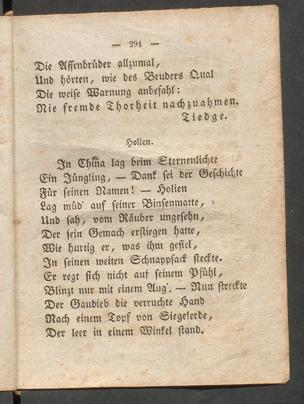 — 291 —
Die Affenbrüder allzumal,
Und hörten, wie des Bruders Qual
Die weise Warnung anbefahl:
Nie fremde Thorheit nachzuahmen.
Tiedge.
Hollen.
In China lag beim Sternenlichte
Ein Jüngling, — Dank sei der Geschichte
Für seinen Namen! — Hollen
Lag müd' auf seiner Binsenmatte,
Und sah, vom Räuber ungesehn,
Der sein Gemach erstiegen hatte,
Wie hurtig er, was ihm gefiel,
In seinen weiten Schnappsack steckte.
Er regt sich nicht auf seinem Pfühl,
Blinzt nur mit einem Aug'. — Nun streckte
Der Gaudieb die verruchte Hand
Nach einem Topf von Siegelerde,
Der leer in einem Winkel stand.